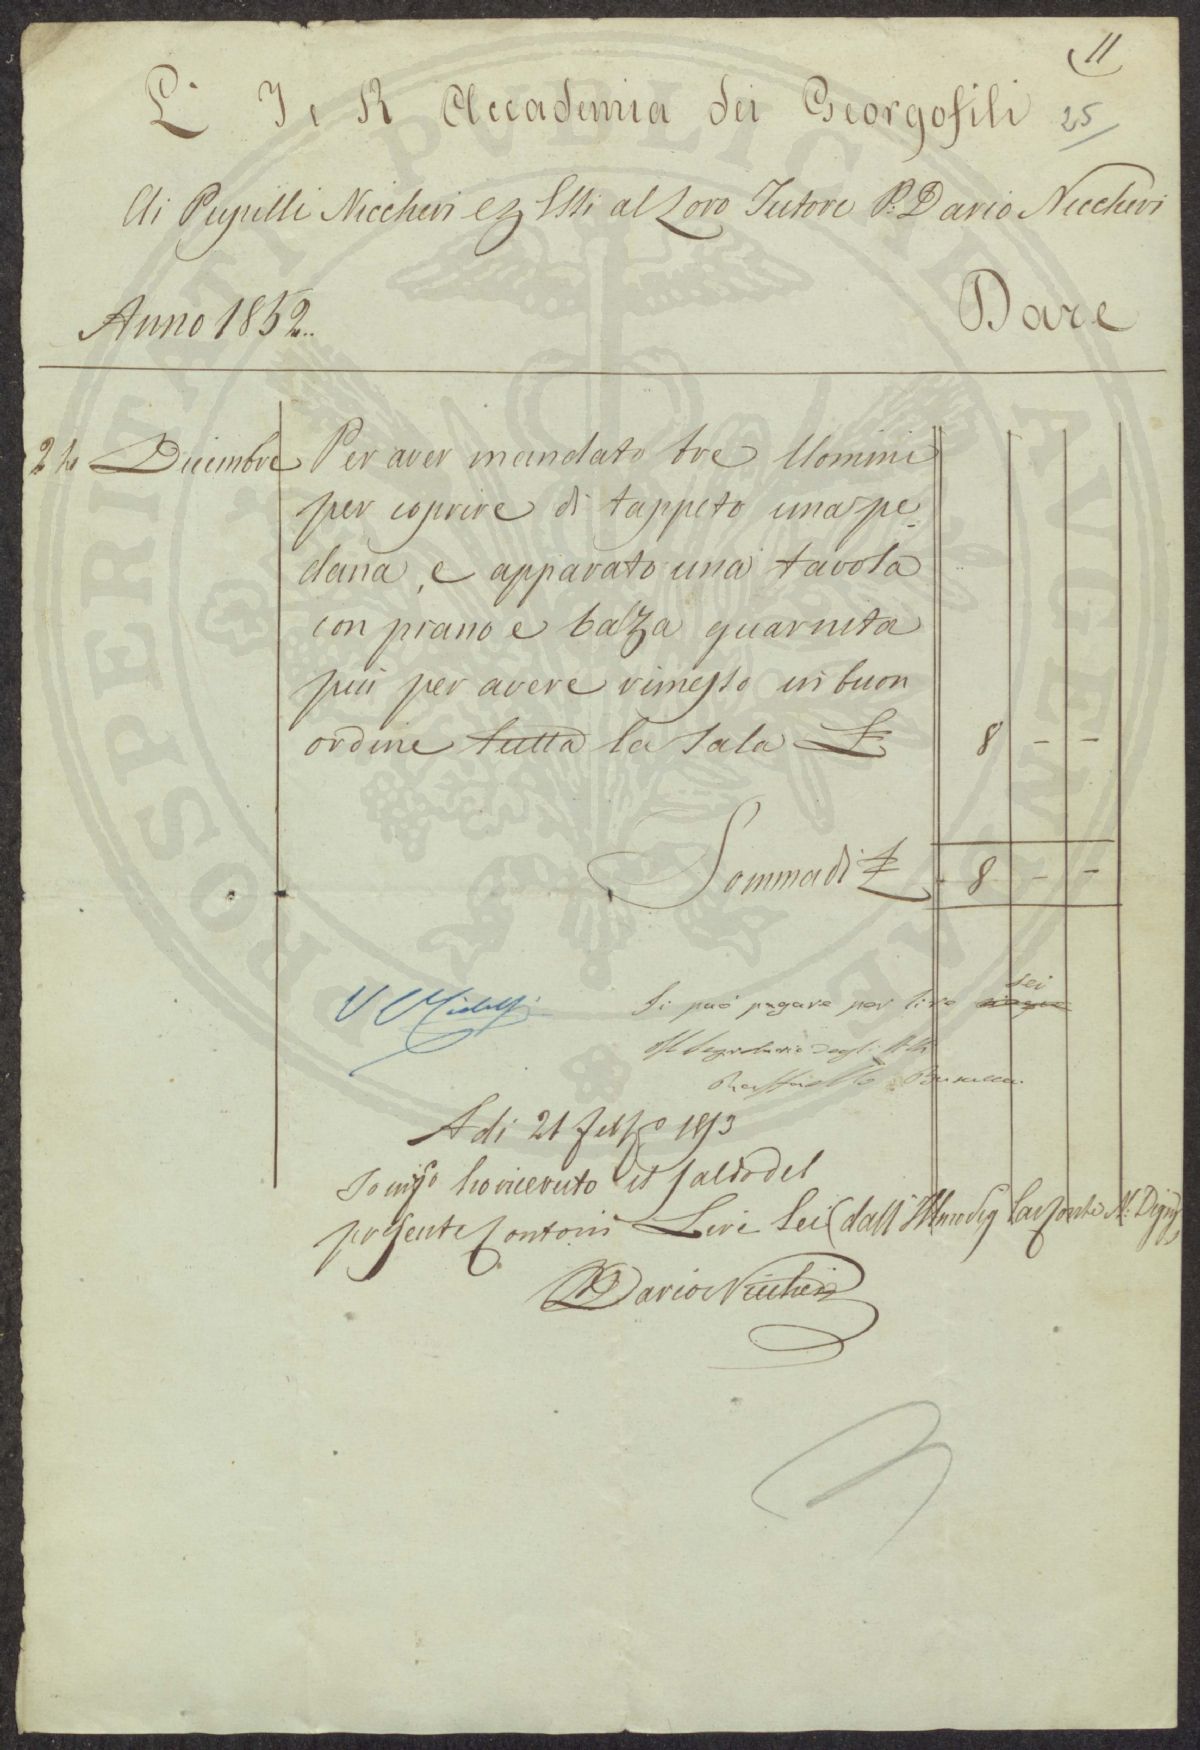 11
L' I e R Accademia dei Georgofili
25
Ai Pupilli Niccheri e p Essi al Loro Tutore P. Dario Niccheri
Anno 1852.
Dare
24 Dicembre Per aver mandato tre Uomini
per coprire di tappeto una pe-
dana, e apparato una tavola
con piano e balza guarnita
più per avere rimesso in buon
ordine tutta la Sala £ 8 - -
Somma di £ 8 - -
V
sei
Si può pagare per lire cinque
Il Segretario degli Atti
Raffaello
A di 21 febb.o 1853
Io infso ho ricevuto il saldo del
presente Conto in Lire Sei (dall' Illmo Sig
P Dario Niccheri
PROSPERITATI PUBLICAE AUGENDAE